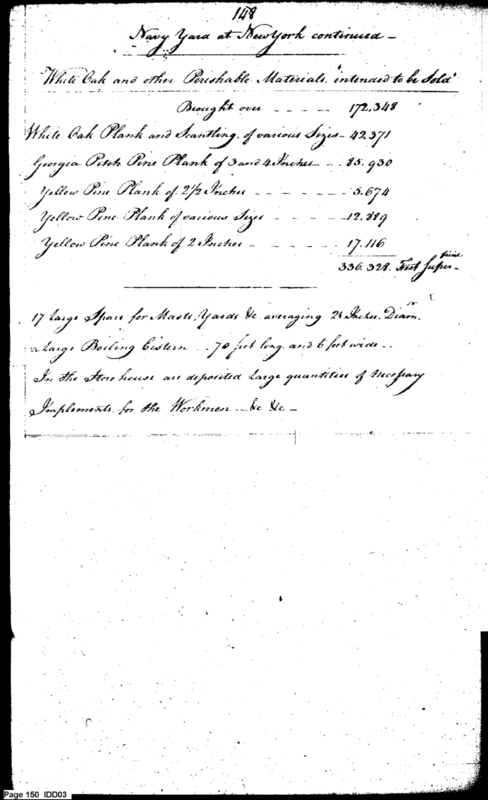 148
Navy Yard at New York continued -
White Oak and other Perishable Materials "intended to be Sold"
Brought over - - - - 172.348
White Oak Plank and Scantling, of various Sizes - 42.371
Georgia Pitch Pine Plank of 3 and 4 Inches - - 85.930
Yellow Pine Plank of 2 1/2 Inches - - - - - 5.674
Yellow Pine Plank of various Sizes - - - - 12.889
Yellow Pine Plank of 2 Inches - - - - 17.116
336.328. Feet Super-
17 Large Spars for Masts, Yards &c averaging Inches Diamr.
a Large Boiling Cistern .. 70 feet long and 6 feet wide ..
In the Store house are deposited Large quantities of Necessary
Implements for the Workmen .. &c &c -
Page 150 IDD03